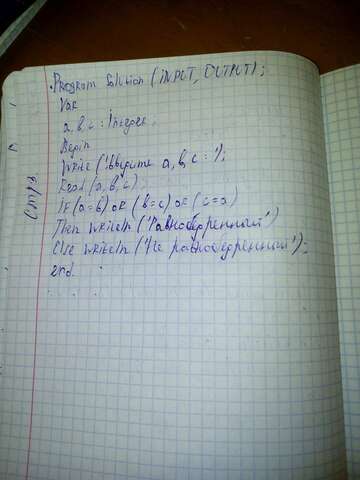 Program Solution (INPUT, OUTPUT);
Var
a, b, c : Integer;
Begin
Write ('Введите a, b, c : ');
Read (a, b, c);
If (a=b) or (b=c) or (c=a)
Then writeln ('Равнобедренный')
Else writeln ('Не равнобедренный');
end.
стр 3